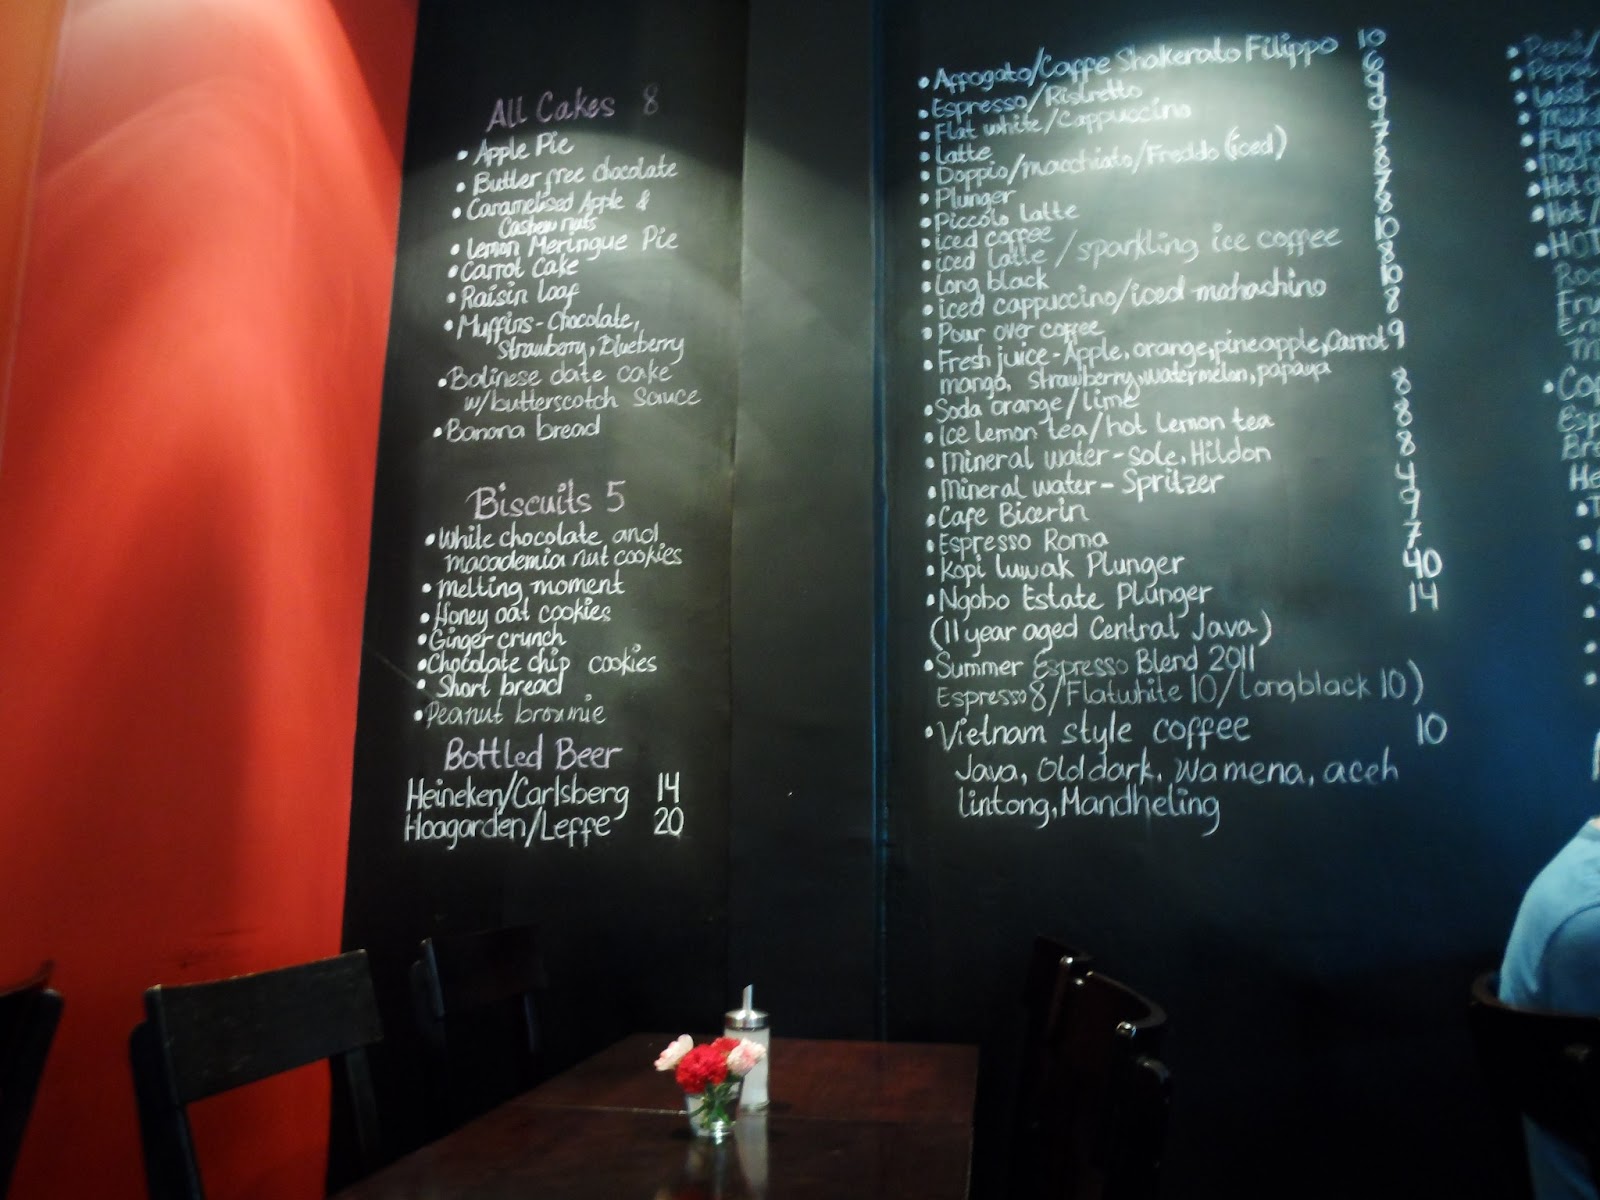 All Cakes 8
• Apple Pie
• Butter free chocolate
• Caramelised Apple &
Cashew nuts
• Lemon Meringue Pie
• Carrot Cake
• Raisin loaf
• Muffins - Chocolate,
Strawberry, Blueberry
• Balinese date cake
w/butterscotch sauce
• Banana bread
Biscuits 5
• White chocolate and
macademia nut cookies
• Melting moment
• Honey oat cookies
• Ginger crunch
• Chocolate chip cookies
• Short bread
• Peanut brownie
Bottled Beer
Heineken/Carlsberg 14
Hoagarden/Leffe 20
• Affogato/Caffe Shakerato Filippo 10
• Espresso/Ristretto 6
• Flat white/Cappuccino 9
• Latte
• Doppio/macchiato/Freddo (iced) 7
• Plunger 8
• Piccolo latte 7
• iced coffee 8
• iced latte / sparkling ice coffee 10
• long black 8
• iced cappuccino/iced mahachino 10
• Pour over coffee 8
• Fresh juice - Apple, orange, pineapple, Carrot 9
mango, strawberry, watermelon, papaya
• Soda orange/lime 8
• Ice lemon tea/hot lemon tea 8
• Mineral water - sole, Hildon 8
• Mineral water - Spritzer 4
• Cafe Bicerin 9
• Espresso Roma 7
• Kopi luwak Plunger 40
• Ngobo Estate Plunger 14
(11 year aged Central Java)
• Summer Espresso Blend 2011
Espresso 8/Flatwhite 10/longblack 10)
• Vietnam style coffee 10
Java, Old dark, Wamena, aceh
lintong, Mandheling
• Pepsi/
• Pepsi
• Hot
• Hot/
• HOT